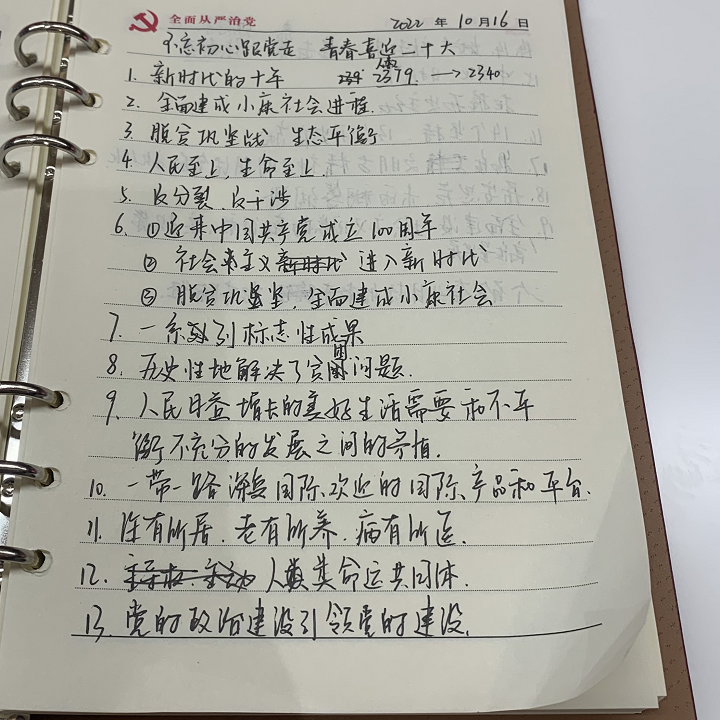 全面从严治党 2022年10月16日
不忘初心跟党走 青春喜迎二十大
1. 新时代的十年 2379. → 2340
2. 全面建成小康社会进程.
3. 脱贫巩坚战 生态平衡
4. 人民至上,生命至上.
5. 反分裂.反干涉
6. ①迎来中国共产党成立100周年
② 社会主义 进入新时代
③ 脱贫巩坚, 全面建成小康社会
7. 一系列标志性成果
8. 历史性地解决了贫困问题.
9. 人民日益增长的美好生活需要和不平
衡不充分的发展之间的矛盾.
10. 一带一路 国际欢迎的国际产品和平台.
11. 住有所居.老有所养.病有所医.
12. 人类命运共同体.
13. 党的政治建设引领党的建设.